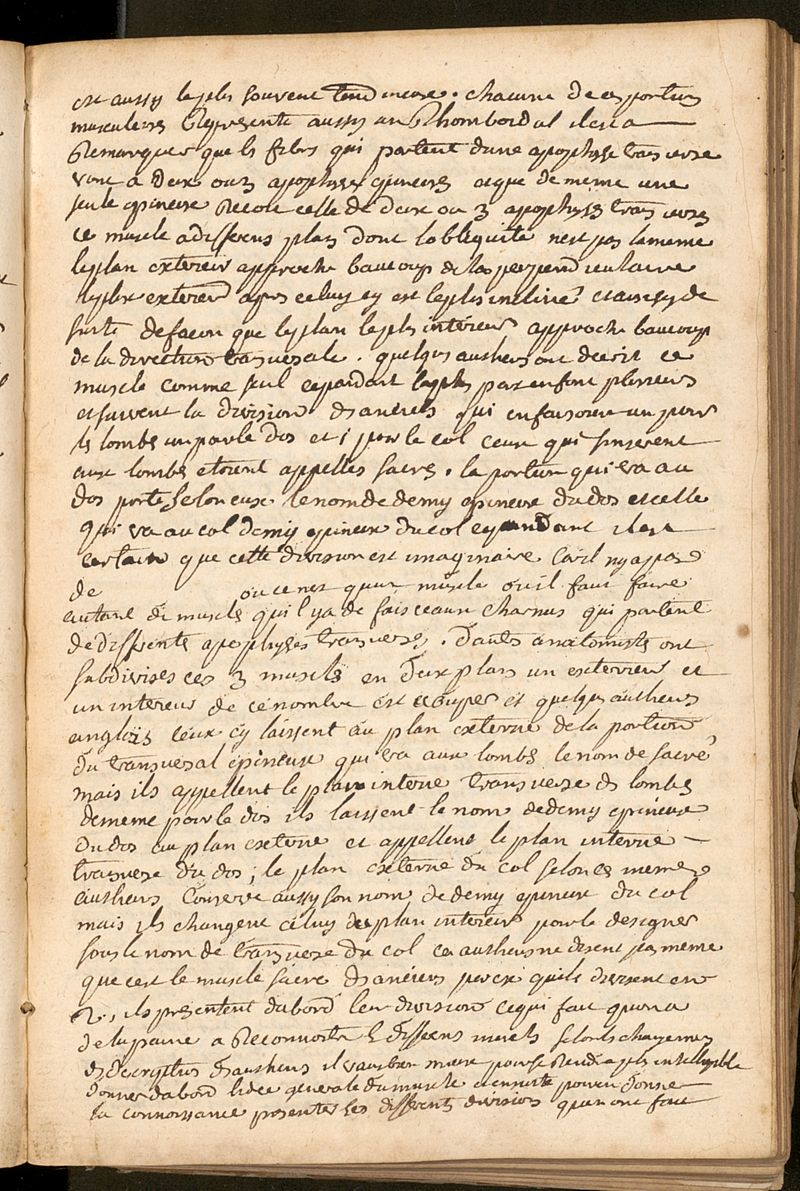 est aussy le plus souvent tendineuse. chacune de ces portions
musculeuses Represente aussy un Rhomboidal il est a
Remarquer que les fibres qui partent dune apophyse transverse
vont a deux ou 3 apophyses epineuses et que de meme une
seule epineuse Recoit celle de deux ou 3 apophyses transverses
ce muscle a differens plans dont lobliquité nest pas la meme
le plan exterieur approche baucoup de la perpendiculaire
le plus exterieur apres celuy cy est le plus incliné et ainsy de
suite de facon que le plan le plus interieur approche baucoup
de la direction transversale. quelques autheurs ont decrit ce
muscle comme seul cependant la plus part en font plusieurs
et suivent la division des anciens qui en faisoient un pour
les lombes un pour le dos et 1 pour le col ceux qui sinserent
aux lombes etoient appelles sacrés. la portion qui va au
dos porte selon eux le nom de demy epineux du dos et celle
qui va au col demy epineux du col cependant il est
certain que cette division est imaginaire car il ny a pas
de ou ce nest quun muscle ou il faut faire
autant de muscles quil y a de faisceaux charnus qui partent
de differentes apophyses transverses. dautres anatomistes ont
subdivisés ces 3 muscles en deux plans un exterieur et
un interieur de ce nombre est couper et quelques autheurs
anglois ceux cy laissent au plan externe de la portion
du transversal epineux qui va aux lombes le nom de sacré
mais ils appellent le plan interne transverse des lombes
de meme pour le dos ils laissent le nom de demy epineux
du dos au plan externe et appellent le plan interne
transverse du dos; le plan externe du col selon ces memes
autheurs conserve aussy son nom de demy epineux du col
mais ils changent celuy du plan interieur pour le designer
sous le nom de transverse du col ces autheurs ne disent pas meme
que cest le muscle sacré des anciens quils divisent en
2, ils presentent dabord leur division ce qui fait quon a
de la peine a Reconnoitre les differens muscles selon les changemens
des descriptions des autheurs il vaut bien mieux pour se Rendre plus intelligible
donner dabord lidee generale du muscle et ensuite pour en donner
la connoissance presenter les differentes divisions quon ont fait